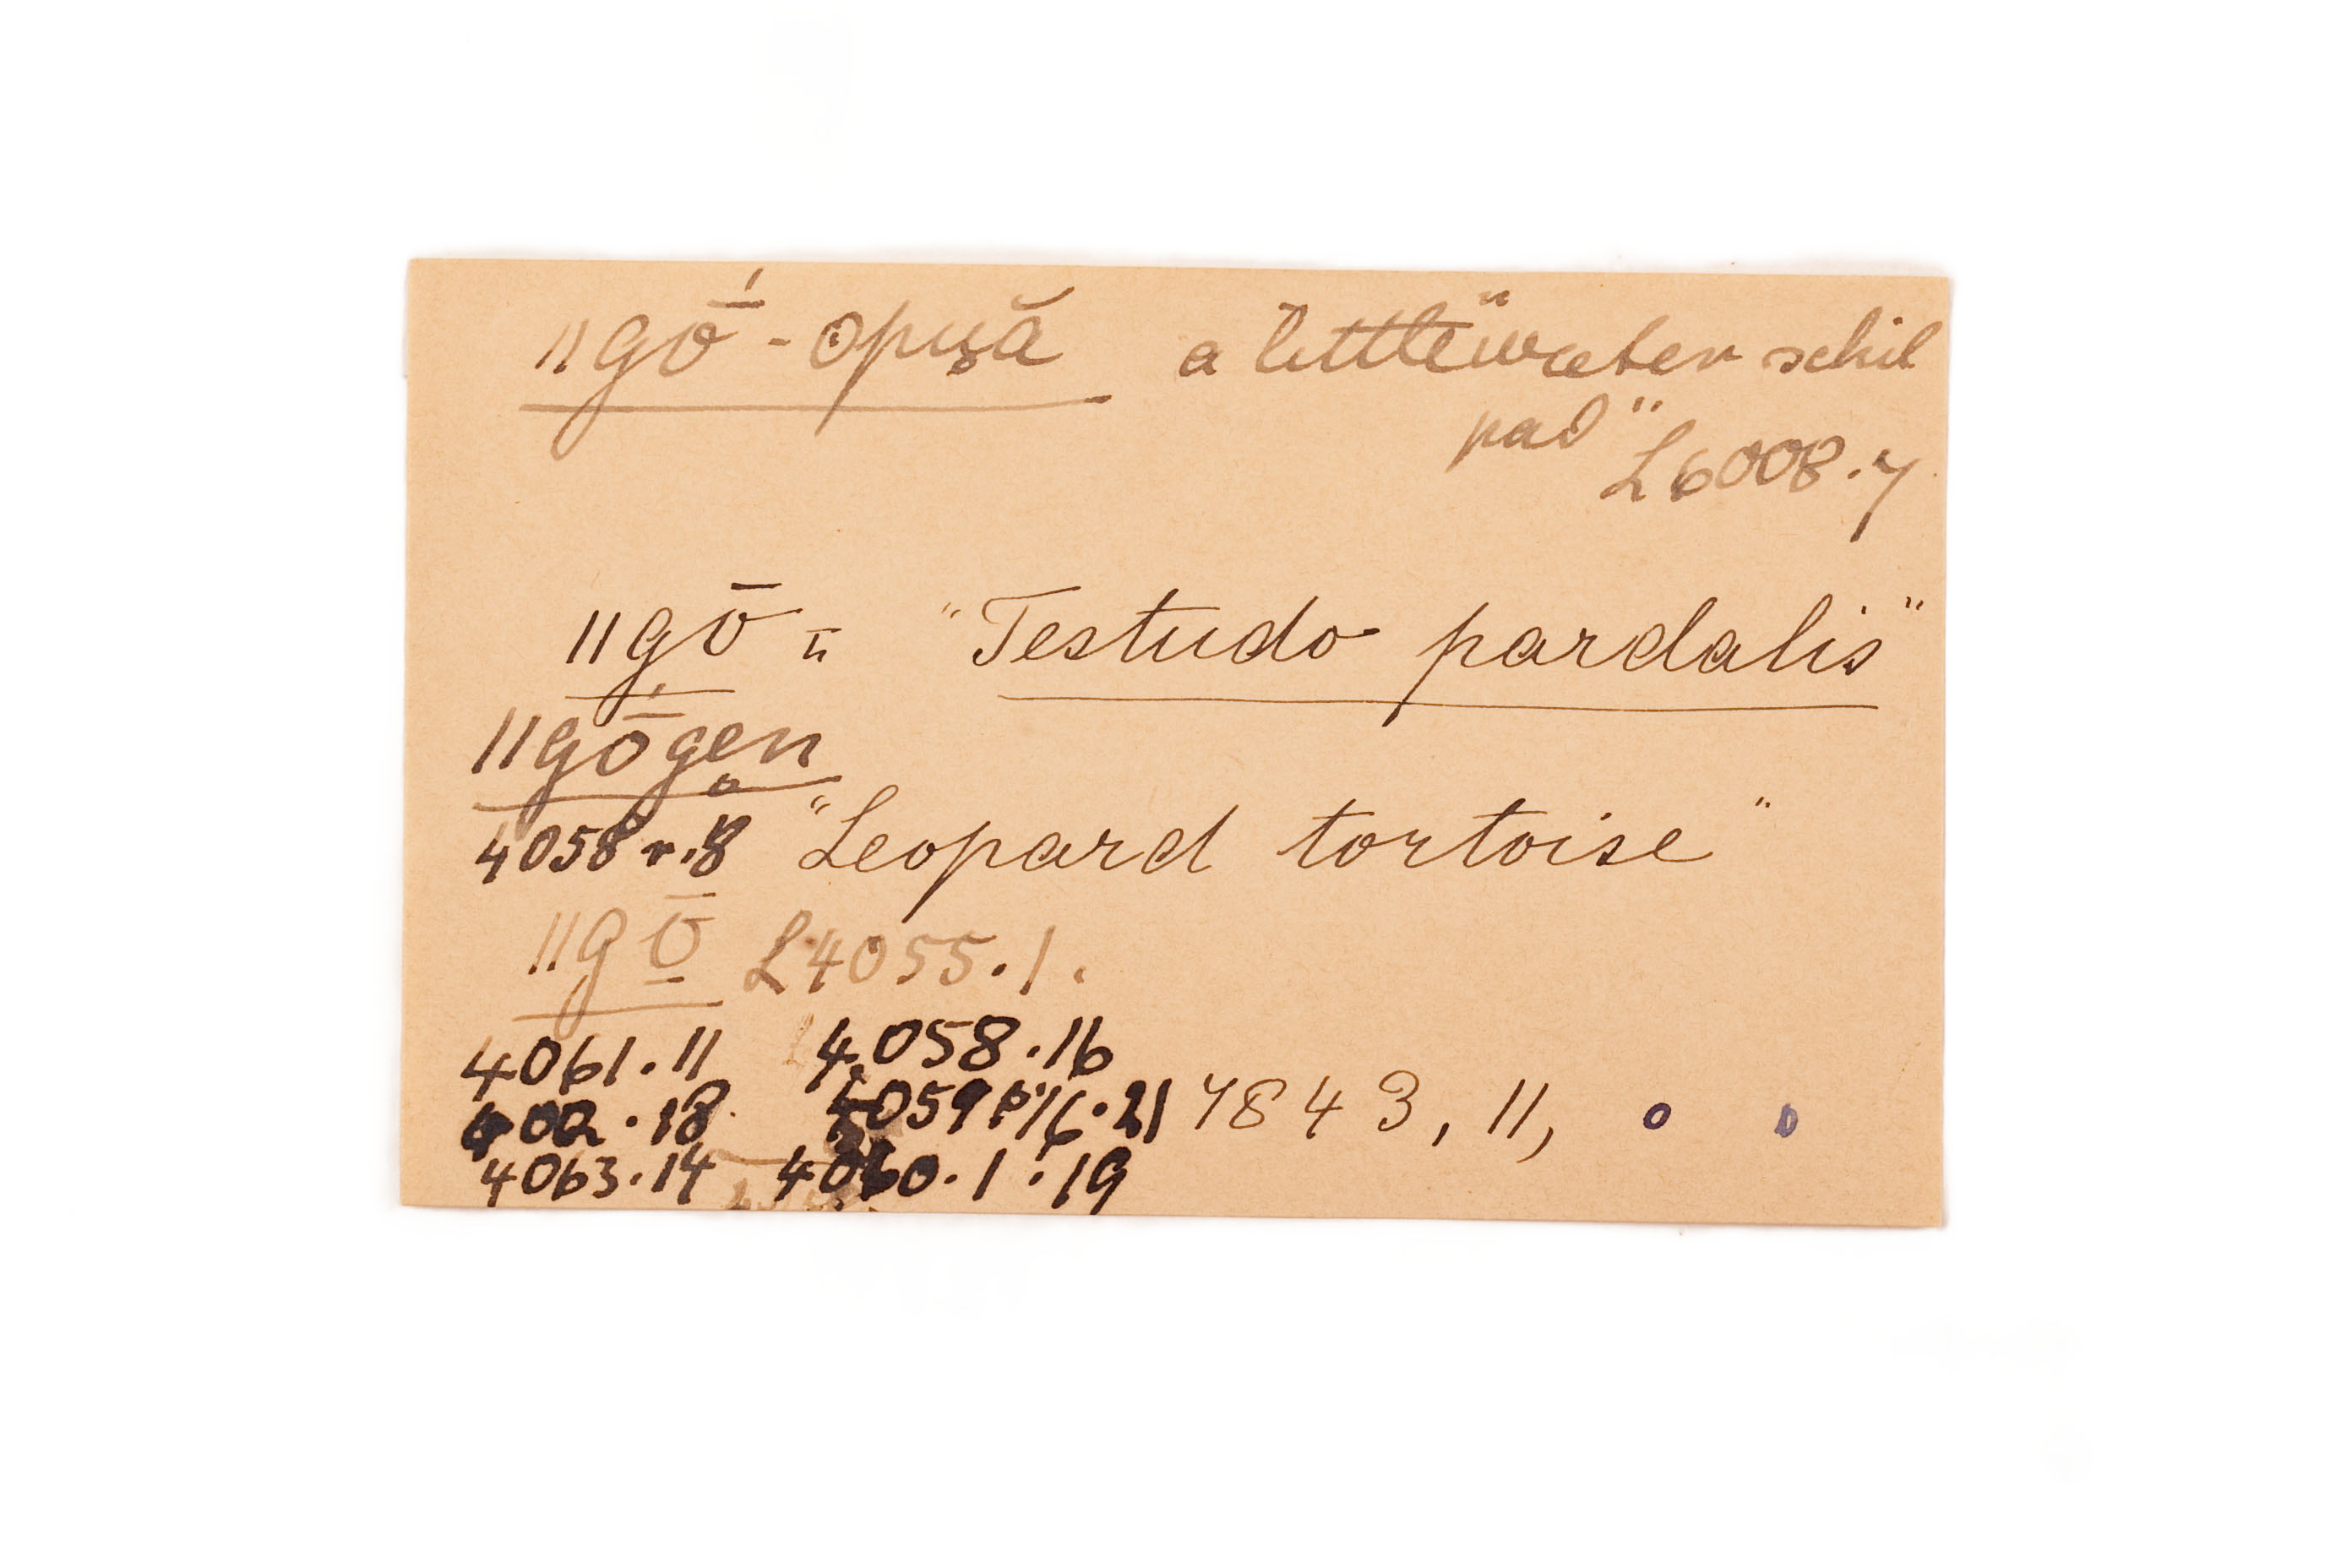 ǁgṓ-opuă a little "water schil
pad"
L6008.7
ǁgō = "Testudo pardalis"
ǁgṓgen
4058 r.8 "Leopard tortoise"
ǁgō L4055.1.
4061.11 4058.16
.18 4059 .21 7843, 11,
4063.14 4060.1.19